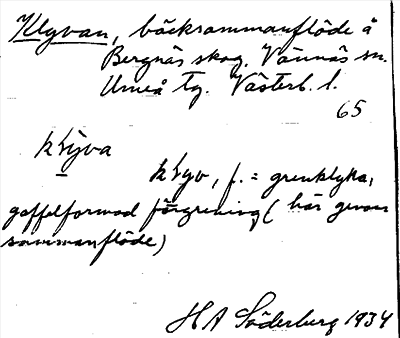 Klyvan, bäcksammanflöde å
Bergnäs skog. Vännäs sn.
Umeå tg. Västerb. l.
65
klyva
klyv, f. = grenklyka,
gaffelformad förgrening (här genom
sammanflöde)
H A Söderberg 1934